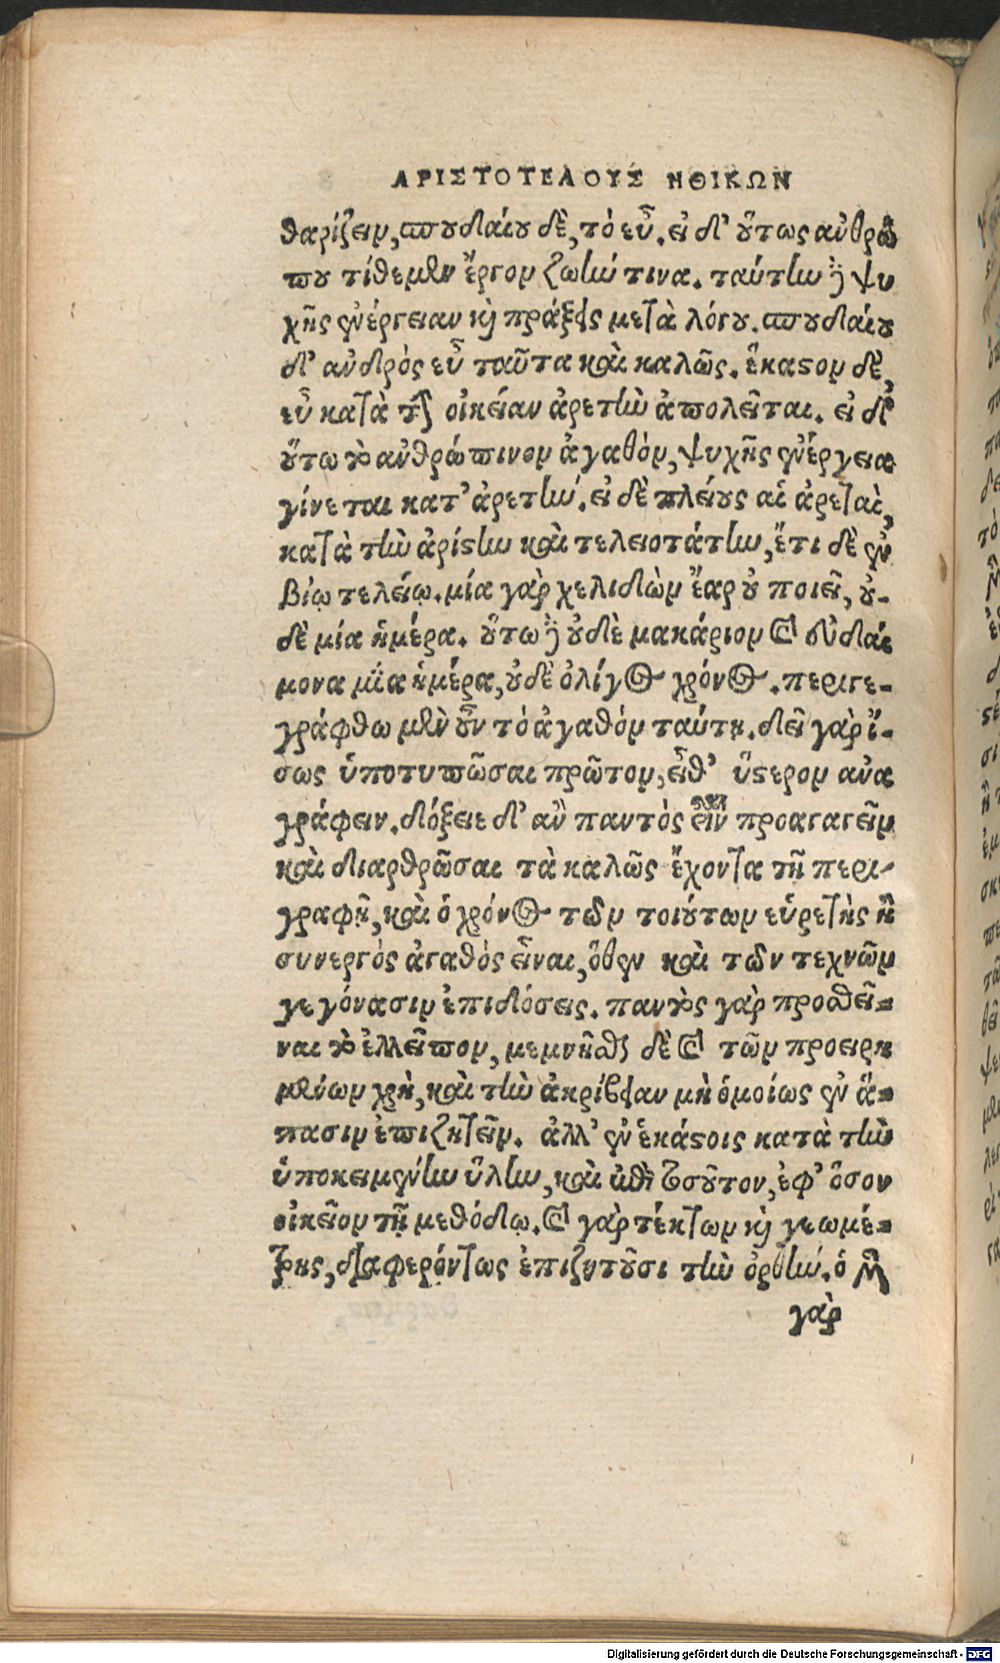 ΑΡΙΣΤΟΤΕΛΟΥΣ ΗΘΙΚΩΝ
θαρίζειν, σπουδαίου δὲ, τὸ εὖ. εἰ δ' οὕτως ἀνθρώ
που τίθεμεν ἔργον ζωήν τινα. ταύτην δὲ ψυ
χῆς ἐνέργειαν καὶ πράξεις μετὰ λόγου. σπουδαίου
δ' ἀνδρὸς εὖ ταῦτα καὶ καλῶς. ἕκαστον δὲ,
εὖ κατὰ τὴν οἰκείαν ἀρετὴν ἀπολεῖται. εἰ δ'
οὕτω τὸ ἀνθρώπινον ἀγαθὸν, ψυχῆς ἐνέργεια
γίνεται κατ' ἀρετήν. εἰ δὲ πλείους αἱ ἀρεταὶ,
κατὰ τὴν ἀρίστην καὶ τελειοτάτην, ἔτι δὲ ἐν
βίῳ τελείῳ. μία γὰρ χελιδὼν ἔαρ οὐ ποιεῖ, οὐ-
δὲ μία ἡμέρα. οὕτω δὲ οὐδὲ μακάριον καὶ εὐδαί
μονα μία ἡμέρα, οὐδὲ ὀλίγος χρόνος. περιγε-
γράφθω μὲν οὖν τὸ ἀγαθὸν ταύτῃ. δεῖ γὰρ ἴ-
σως ὑποτυπῶσαι πρῶτον, εἶθ' ὕστερον ἀνα
γράφειν. δόξειε δ' ἂν παντὸς εἶναι προαγαγεῖν
καὶ διαρθρῶσαι τὰ καλῶς ἔχοντα τῇ περι-
γραφῇ, καὶ ὁ χρόνος τῶν τοιούτων εὑρετὴς ἢ
συνεργὸς ἀγαθὸς εἶναι, ὅθεν καὶ τῶν τεχνῶν
γεγόνασιν ἐπιδόσεις. παντὸς γὰρ προσθεῖ-
ναι τὸ ἐλλεῖπον, μεμνῆσθαι δὲ καὶ τῶν προειρη
μένων χρὴ, καὶ τὴν ἀκρίβειαν μὴ ὁμοίως ἐν ἅ-
πασιν ἐπιζητεῖν. ἀλλ' ἐν ἑκάστοις κατὰ τὴν
ὑποκειμένην ὕλην, καὶ ἐπὶ τοσοῦτον, ἐφ' ὅσον
οἰκεῖον τῇ μεθόδῳ. καὶ γὰρ τέκτων καὶ γεωμέ-
τρης, διαφερόντως ἐπιζητοῦσι τὴν ὀρθήν. ὁ μὲν
γὰρ
Digitalisierung gefördert durch die Deutsche Forschungsgemeinschaft - DFG